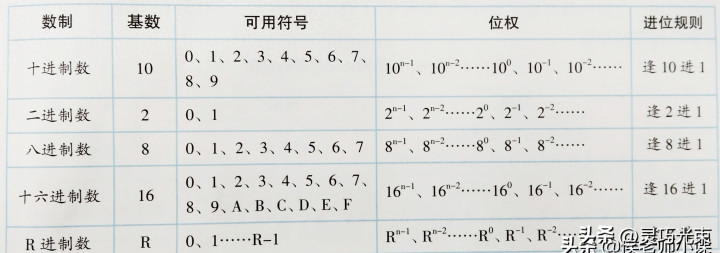 数制 基数 可用符号 位权 进位规则
十进制数 10 0、1、2、3、4、5、6、7、8、9 10ⁿ⁻¹、10ⁿ⁻²……10⁰、10⁻¹、10⁻²…… 逢 10 进 1
二进制数 2 0、1 2ⁿ⁻¹、2ⁿ⁻²……2⁰、2⁻¹、2⁻²…… 逢 2 进 1
八进制数 8 0、1、2、3、4、5、6、7 8ⁿ⁻¹、8ⁿ⁻²……8⁰、8⁻¹、8⁻²…… 逢 8 进 1
十六进制数 16 0、1、2、3、4、5、6、7、8、9、A、B、C、D、E、F 16ⁿ⁻¹、16ⁿ⁻²……16⁰、16⁻¹、16⁻²…… 逢 16 进 1
R 进制数 R 0、1……R-1 Rⁿ⁻¹、Rⁿ⁻²……R⁰、R⁻¹、R⁻²…
头条@灵巧光束